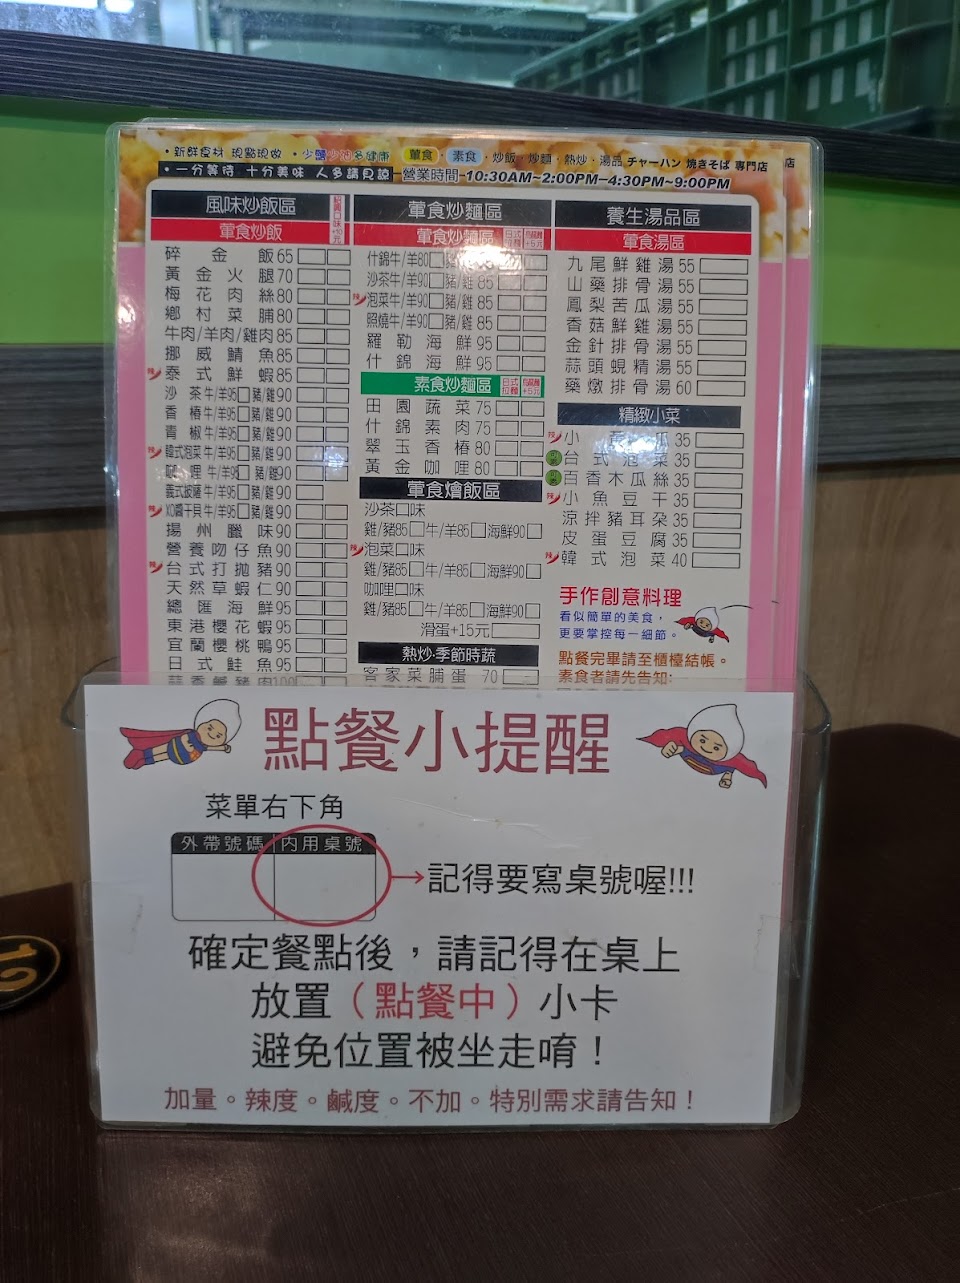 ・新鮮食材 現點現做 ・少鹽少油多健康 葷食・素食・炒飯・炒麵・熱炒・湯品 チャーハン 焼きそば 専門店
店
・一分等待 十分美味 人多請見諒 營業時間 10:30AM~2:00PM-4:30PM~9:00PM
風味炒飯區
葷食炒飯
碎金飯65
黃金火腿70
梅花肉絲80
鄉村菜脯80
牛肉/羊肉/雞肉85
挪威鯖魚85
辣 泰式鮮蝦85
沙茶牛/羊95 豬/雞90
香椿牛/羊95 豬/雞90
青椒牛/羊95 豬/雞90
辣 韓式泡菜牛/羊95 豬/雞90
咖哩牛/羊95 豬/雞90
義式披薩牛/羊95 豬/雞90
辣 XO醬干貝牛/羊95 豬/雞90
揚州臘味90
營養吻仔魚90
辣 台式打拋豬90
天然草蝦仁90
總匯海鮮95
東港櫻花蝦95
宜蘭櫻桃鴨95
日式鮭魚95
蒜香鹹豬肉100
葷食炒麵區
葷食炒麵區 日式拉麵 烏龍麵+5元
什錦牛/羊80
沙茶牛/羊90 豬/雞85
辣 泡菜牛/羊90 豬/雞85
照燒牛/羊90 豬/雞85
羅勒海鮮95
什錦海鮮95
素食炒麵區
田園蔬菜75
什錦素肉75
翠玉香椿80
黃金咖哩80
葷食燴飯區
沙茶口味
雞/豬85 牛/羊85 海鮮90
辣 泡菜口味
雞/豬85 牛/羊85 海鮮90
咖哩口味
雞/豬85 牛/羊85 海鮮90
滑蛋+15元
熱炒・季節時蔬
客家菜脯蛋 70
養生湯品區
葷食湯區
九尾鮮雞湯55
山藥排骨湯55
鳳梨苦瓜湯55
香菇鮮雞湯55
金針排骨湯55
蒜頭蜆精湯55
藥燉排骨湯60
精緻小菜
辣 小黃瓜35
台式泡菜35
百香木瓜絲35
辣 小魚豆干35
涼拌豬耳朶35
皮蛋豆腐35
辣 韓式泡菜40
手作創意料理
看似簡單的美食，
更要掌控每一細節。
點餐完畢請至櫃檯結帳。
素食者請先告知:
點餐小提醒
菜單右下角
外帶號碼 內用桌號
記得要寫桌號喔!!!
確定餐點後，請記得在桌上
放置（點餐中）小卡
避免位置被坐走唷！
加量。辣度。鹹度。不加。特別需求請告知！